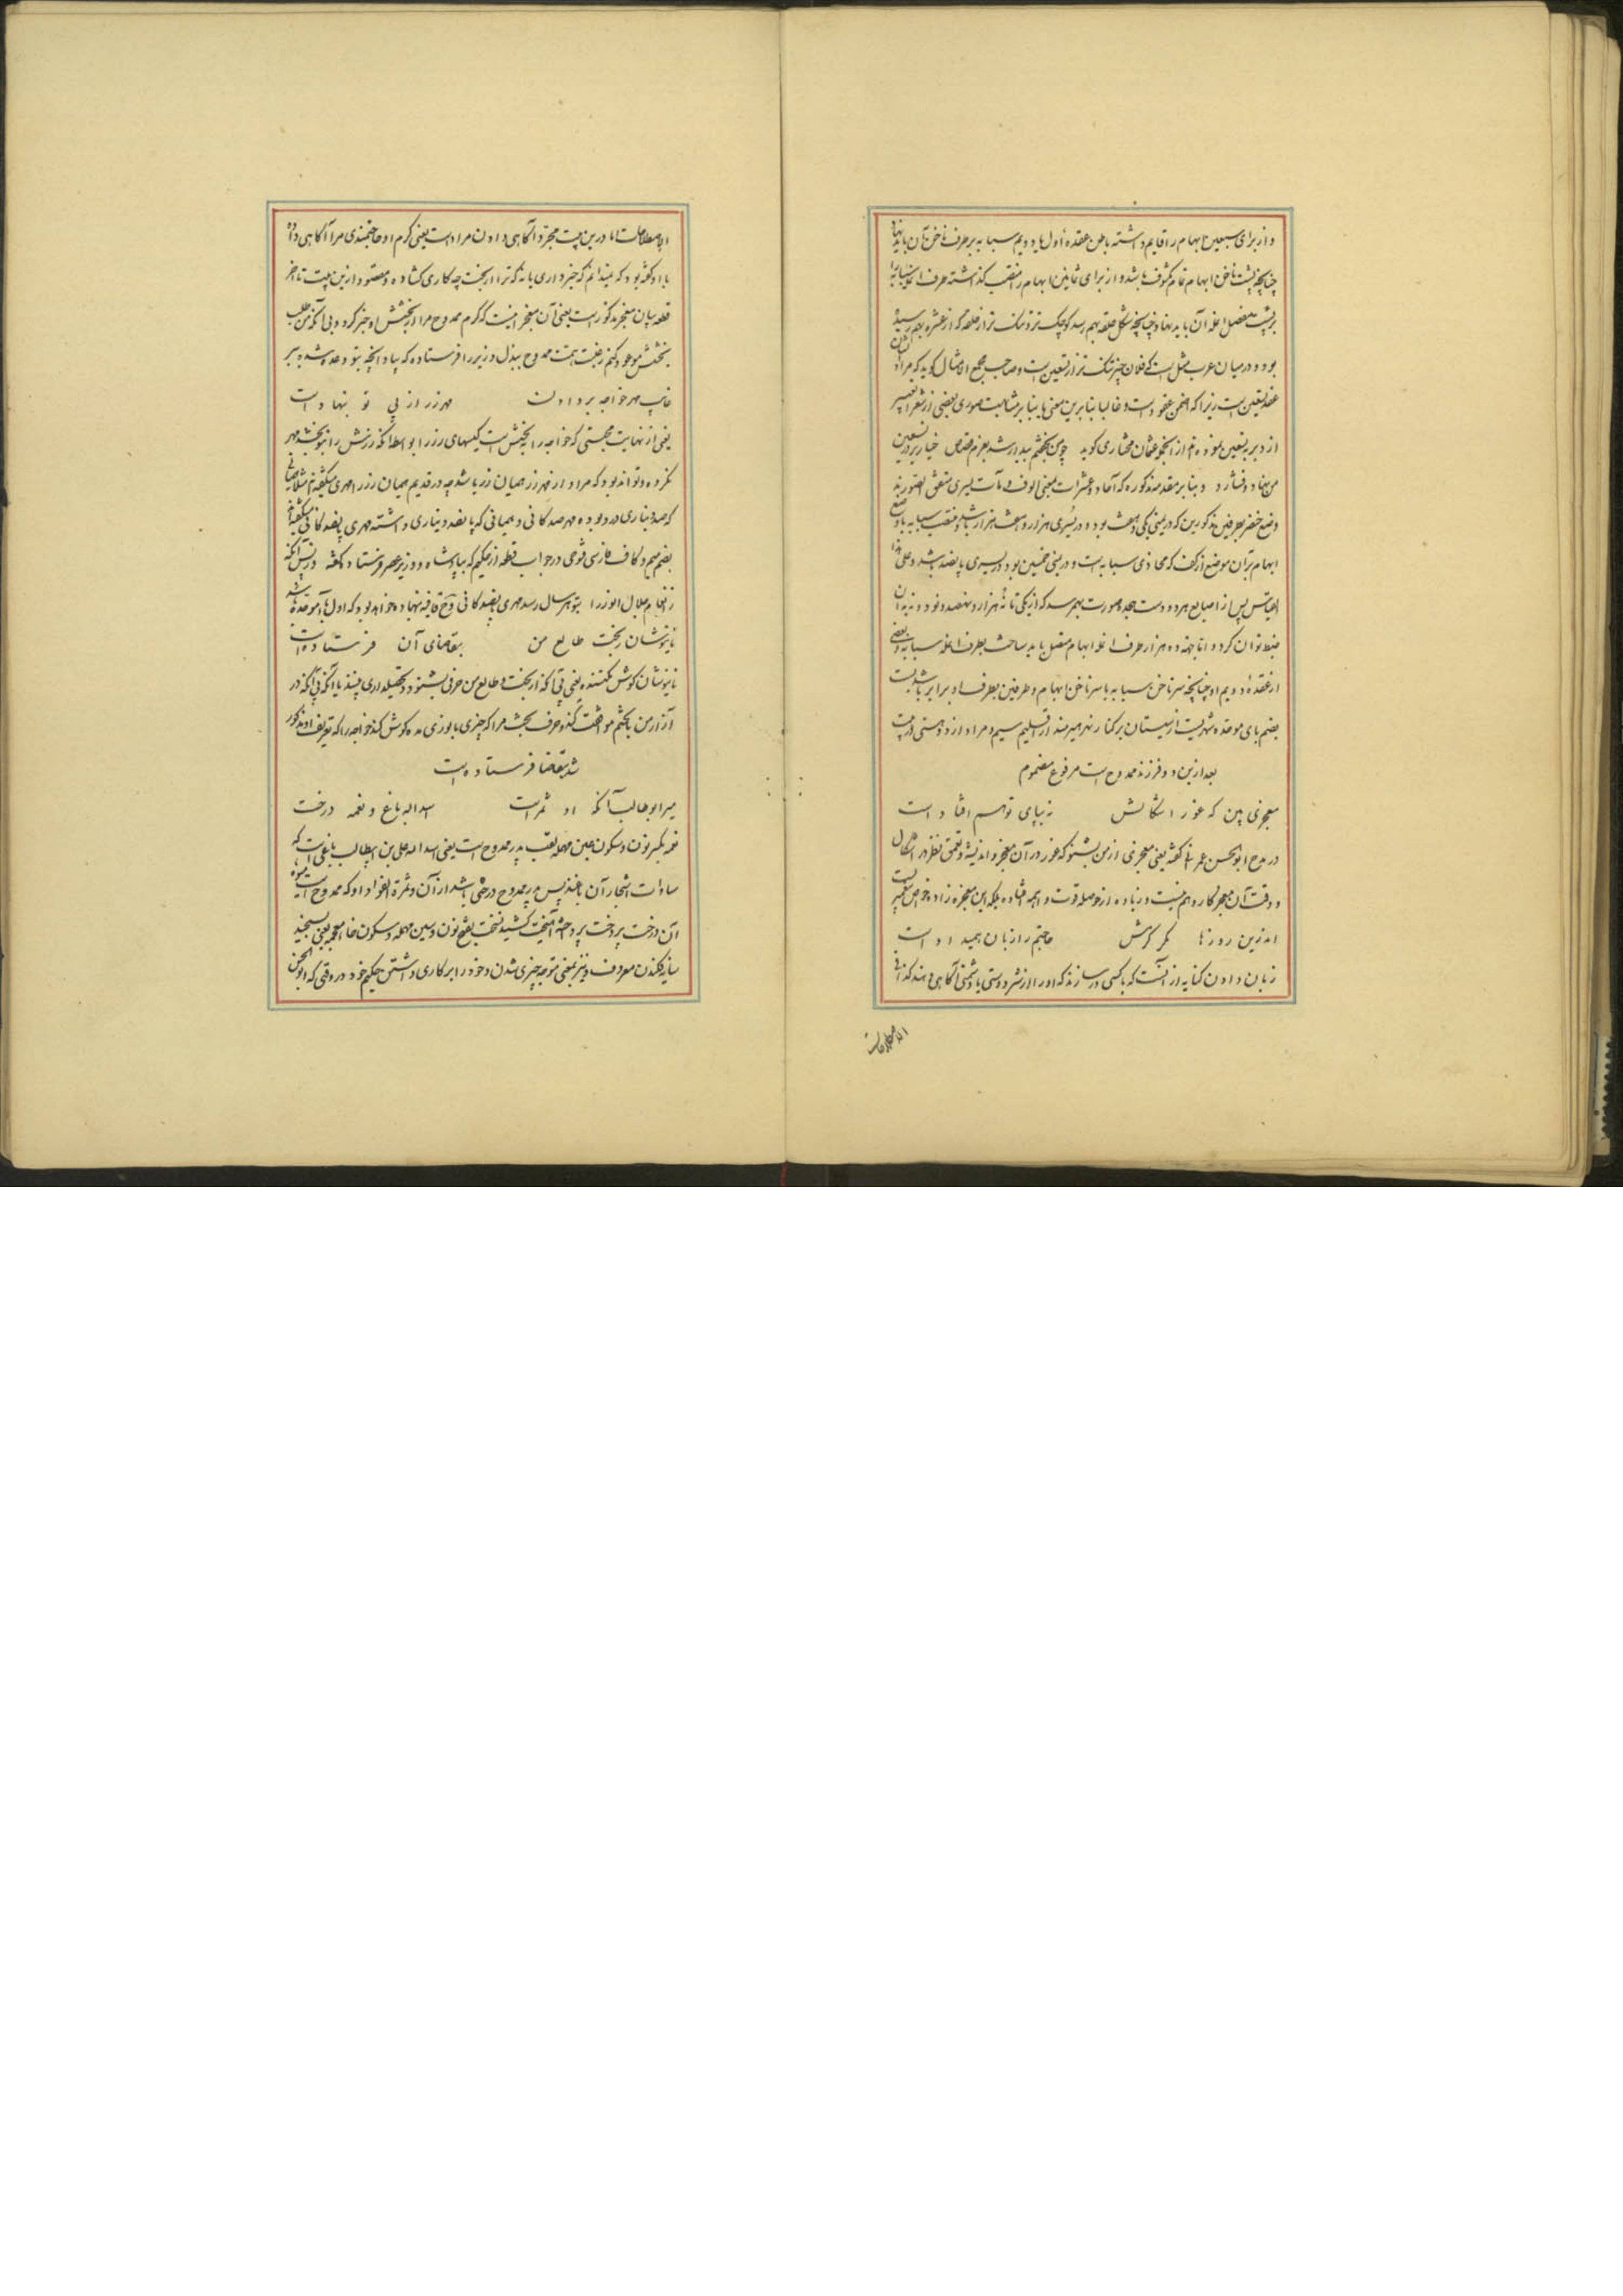 و از برای سبعین ابهام را قایم داشته باطن عقده اول یا دویم سبابه بر طرف ناخن آن باید نهاد
چنانچه پشت ناخن ابهام تمام مکشوف باشد و از برای ثمانین ابهام را منتصب گذاشته طرف انمله سبابه را
بر پشت مفصل انمله آن باید نهاد و چنانچه شکل حلقه بهم رسد کوچک تر و تنک تر از حلقه که از عشره بهم رسیده
بود و در میان عرب مثل است که فلان چیز تنک تر از تسعین است و صاحب مجمع الامثال گوید که مراد
عقد تسعین است زیرا که اضمن عقود است و غالبا بنابرین معنی یا بنابر مشابهت صوری بعضی از شعرا تعبیر
از دبر به تسعین نموده‌اند از آنجمله عثمان مختاری گوید چون بخشم بیدار شد بعزم قصاص
من نهاد و فشارد و بنابر مقدمه مذکوره که آحاد و عشرات یمنی الوف و مآت یسری متفق الصورند
وضع خنصر بطریق مذکور این که در یمنی یکی و در یسری هزار باشد
ابهام بر آن موضع از کف که محاذی سبابه است و در یمنی خمسین بود در یسری پانصد باشد و علی هذا
القیاس پس از اصابع هر دو دست هجده صورت بهم رسد که از یکی تا نه هزار و نهصد و نود و نه بدان
ضبط توان کرد و اما جهة ده هزار طرف انمله ابهام متصل باید ساخت بطرف انمله سبابه و بعضی
از عقده دویم او چنانچه سر ناخن سبابه با سر ناخن ابهام و طرفین بطرف او برابر باشد بست
بضم بای موحده شهریست از سیستان بر کنار نهر هیرمند از اقلیم سیم و مراد از دو
بعد ازین دو فرزند ممدوح است مرفوع مضموم
معجزی بین که غور اشکالش نه بپای توهم افتاد است
در مدح ابوالحسن عمرانی گفته یعنی معجزی از من بشنو که غور در آن معجز و اندیشه و تعمق نظر در اشکال
و دقت آن معجز کار وهم نیست و زیاده از حوصله قوت واهمه افتاده بلکه این معجزه زاده
اندرین روزها مگر کرمش حاجتم را زبان همید اد است
زبان دادن کنایه از آنست که با کسی در سازند که او را از شر دوستی یا دشمنی آگاهی دهند
الاصطلاحات
الاصطلاحات اما درین بیت مجرد آگاهی دادن مراد است یعنی کرم او حاجتمندی مرا آگاهی داد
با او گفته بود که نمیدانم که خبر داری یا نه که ترا از بخت چه کاری گشاده و مقصود ازین بیت تا آخر
قطعه بیان معجز مذکور است یعنی آن معجز اینست که کرم ممدوح مرا از بخشش او خبر کرده بی آنکه من طلب
بخشش موعود کنم رغبت همت ممدوح ببذل و زیر را فرستاده که بیا و آنچه بتو وعده شده ببر
غایت مهر خواجه بر دادن مهر زر از پی تو بنهاد است
یعنی از نهایت محبتی که خواجه را به بخشش است کیسهای زر را بواسطه آنکه زرش را بتو بخشد مهر
نکرده و تواند بود که مراد از مهر زر همیان زر باشد چه در قدیم همیان زر را مهری میگفته‌اند مثلا همیانی
که صد دیناری در او بوده مهر صد کانی و همیانی که پانصد دیناری داشته مهری پانصد کانی میگفته‌اند
بضم میم و کاف فارسی فتوحی در جواب قطعه از حکیم که بپادشاه و وزیر عصر فرستاد گفته
ز انعام جلال الوزرا بتو هر سال رسد مهری پانصد کانی
نانیوشان ز بخت طالع من بتقاضای آن فرستاد است
نانیوشان گوش نکننده یعنی بی آنکه از بخت و طالع من حرفی بشنود و تحصیلداری ببیند یا آنکه بی آنکه در
آزار من با خشم موافقت کند و حرف بخت مرا که چیزی با نوری مده گوش کند خواجه را که تعریف او مذکور
شد بتقاضا فرستاده است
میر ابوطالب آنکه او ثمر است اسد اله باغ و نعمه درخت
نعمه بکسر نون و سکون عین مهمله لقب پدر ممدوح است یعنی اسد الله علی بن ابیطالب باغی است که
سادات اشجار آن باغند پس پدر ممدوح درختی باشد از آن و ثمرة الفواد او که ممدوح است میوه
آن درخت پردخت پردخته آهیخت کشید نسخت بفتح نون و سین مهمله و سکون خاء معجمه یعنی سنجید
سایه فکندن معروف و نیز بمعنی متوجه چیزی شدن و خود را بر کاری داشتن حکیم خود در وقتی که ابوالحسن